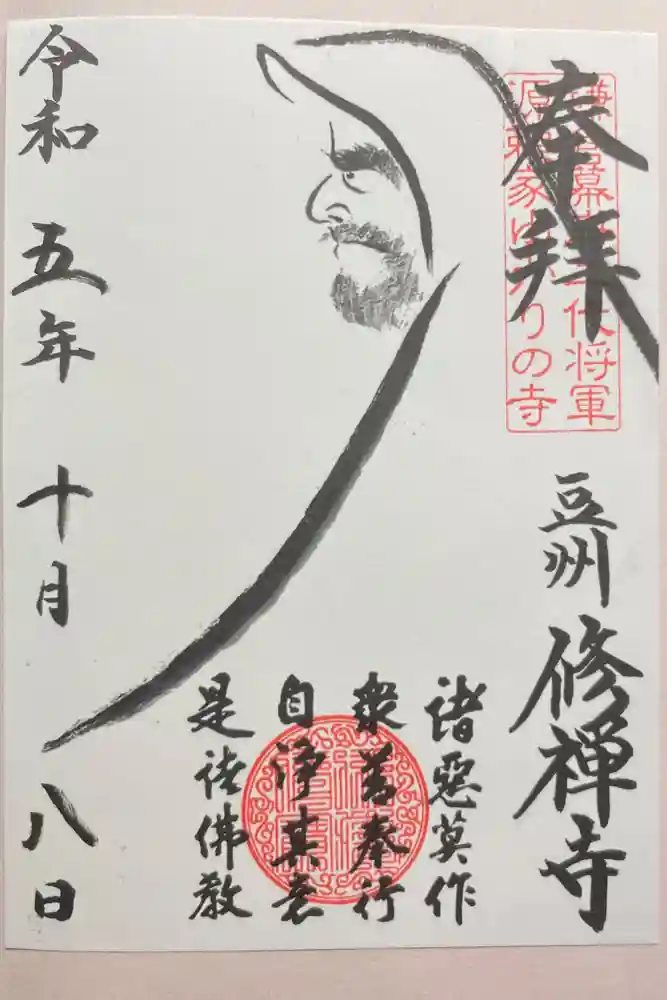 奉拝
鎌倉幕府二代将軍
源頼家ゆかりの寺
豆州 修禅寺
諸惡莫作
衆善奉行
自浄其意
是諸佛教
令和 五年 十月 八日